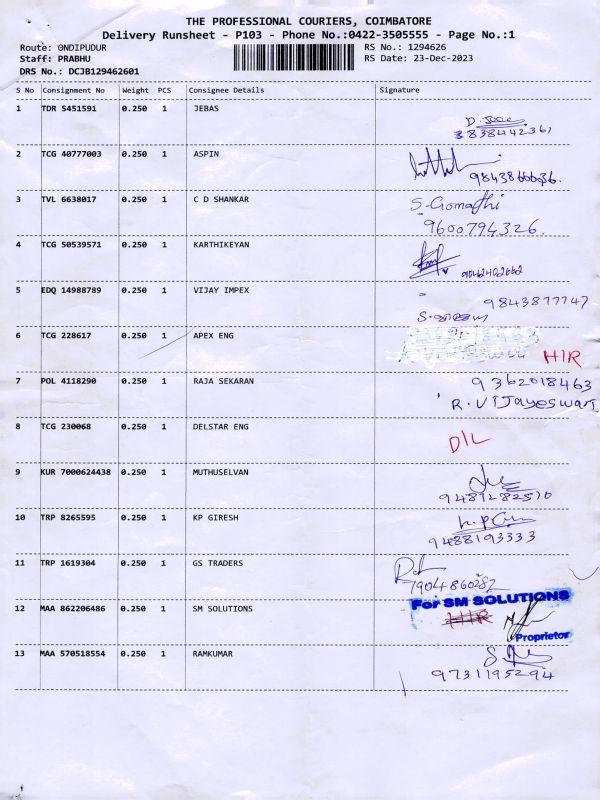 THE PROFESSIONAL COURIERS, COIMBATORE
Delivery Runsheet - P103 - Phone No.:0422-3505555 - Page No.:1
Route: ONDIPUDUR RS No.: 1294626
Staff: PRABHU RS Date: 23-Dec-2023
DRS No.: DCJB129462601
S No Consignment No Weight PCS Consignee Details Signature
1 TDR 5451591 0.250 1 JEBAS
2 TCG 40777003 0.250 1 ASPIN
9843866636.
3 TVL 6638017 0.250 1 C D SHANKAR S-Gomathi
9600794326.
4 TCG 50539571 0.250 1 KARTHIKEYAN
5 EDQ 14988789 0.250 1 VIJAY IMPEX 9843877747
6 TCG 228617 0.250 1 APEX ENG HIR
7 POL 4118290 0.250 1 RAJA SEKARAN 9362018463
R. VIJayeswari
8 TCG 230068 0.250 1 DELSTAR ENG D/L
9 KUR 7000624438 0.250 1 MUTHUSELVAN
9489282510
10 TRP 8265595 0.250 1 KP GIRESH
9488193333
11 TRP 1619304 0.250 1 GS TRADERS
7904860282
12 MAA 862206486 0.250 1 SM SOLUTIONS For SM SOLUTIONS
HIR
Proprietor
13 MAA 570518554 0.250 1 RAMKUMAR
9731195294